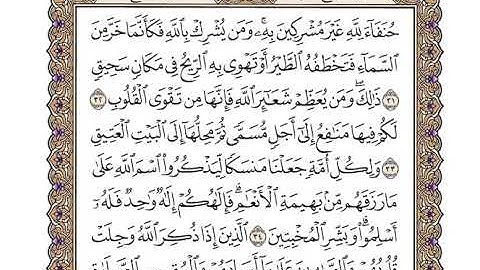 حُنَفَآءَ لِلَّهِ غَيۡرَ مُشۡرِكِينَ بِهِۦۚ وَمَن يُشۡرِكۡ بِٱللَّهِ فَكَأَنَّمَا خَرَّ مِنَ
ٱلسَّمَآءِ فَتَخۡطَفُهُ ٱلطَّيۡرُ أَوۡ تَهۡوِي بِهِ ٱلرِّيحُ فِي مَكَانٖ سَحِيقٖ
٣١ ذَٰلِكَۖ وَمَن يُعَظِّمۡ شَعَٰٓئِرَ ٱللَّهِ فَإِنَّهَا مِن تَقۡوَى ٱلۡقُلُوبِ ٣٢
لَكُمۡ فِيهَا مَنَٰفِعُ إِلَىٰٓ أَجَلٖ مُّسَمّٗى ثُمَّ مَحِلُّهَآ إِلَى ٱلۡبَيۡتِ ٱلۡعَتِيقِ
٣٣ وَلِكُلِّ أُمَّةٖ جَعَلۡنَا مَنسَكٗا لِّيَذۡكُرُواْ ٱسۡمَ ٱللَّهِ عَلَىٰ
مَا رَزَقَهُم مِّنۢ بَهِيمَةِ ٱلۡأَنۡعَٰمِۗ فَإِلَٰهُكُمۡ إِلَٰهٞ وَٰحِدٞ فَلَهُۥٓ
أَسۡلِمُواْۗ وَبَشِّرِ ٱلۡمُخۡبِتِينَ ٣٤ ٱلَّذِينَ إِذَا ذُكِرَ ٱللَّهُ وَجِلَتۡ